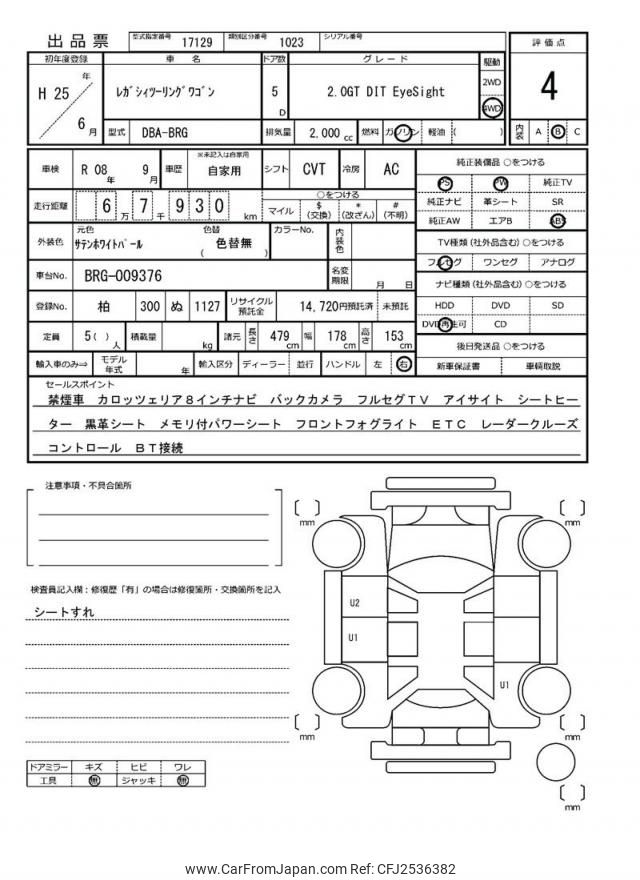 出品票 型式指定番号 17129 類別区分番号 1023 シリアル番号
初年度登録 車名 ドア数 グレード 駆動 評価点
H 25 年 6 月 レガシィツーリングワゴン 5 D 2.0GT DIT EyeSight 2WD 4WD 4
型式 DBA-BRG 排気量 2,000 cc 燃料 ガソリン 軽油 ( ) 内装 A B C
車検 R 08 年 9 月 車歴 ※未記入は自家用 自家用 シフト CVT 冷房 AC 純正装備品 ○をつける
PS PW 純正TV
走行距離 6 万 7 千 9 3 0 km ○をつける
マイル $ (交換) * (改ざん) # (不明)
純正ナビ 革シート SR
純正AW エアB ABS
外装色 元色 サテンホワイトパール 色替 ( 色替無 ) カラーNo. 内装色
TV種類 (社外品含む) ○をつける
フルセグ ワンセグ アナログ
車台No. BRG-009376 名変期限 月 日
ナビ種類 (社外品含む) ○をつける
登録No. 柏 300 ぬ 1127 リサイクル預託金 14,720円預託済 未預託
HDD DVD SD
DVD再生可 CD
定員 5( ) 人 積載量 kg 諸元 長さ 479 cm 幅 178 cm 高さ 153 cm
後日発送品 ○をつける
輸入車のみ⇒ モデル年式 年 輸入区分 ディーラー 並行 ハンドル 左 右
新車保証書 車輌取説
セールスポイント
禁煙車 カロッツェリア8インチナビ バックカメラ フルセグTV アイサイト シートヒー
ター 黒革シート メモリ付パワーシート フロントフォグライト ETC レーダークルーズ
コントロール BT接続
注意事項・不具合箇所
mm
mm
検査員記入欄:修復歴「有」の場合は修復箇所・交換箇所を記入
シートすれ
U2
U1
U1
mm
mm
mm
ドアミラー キズ ヒビ ワレ
工具 無 ジャッキ 無
www.CarFromJapan.com Ref: CFJ2536382